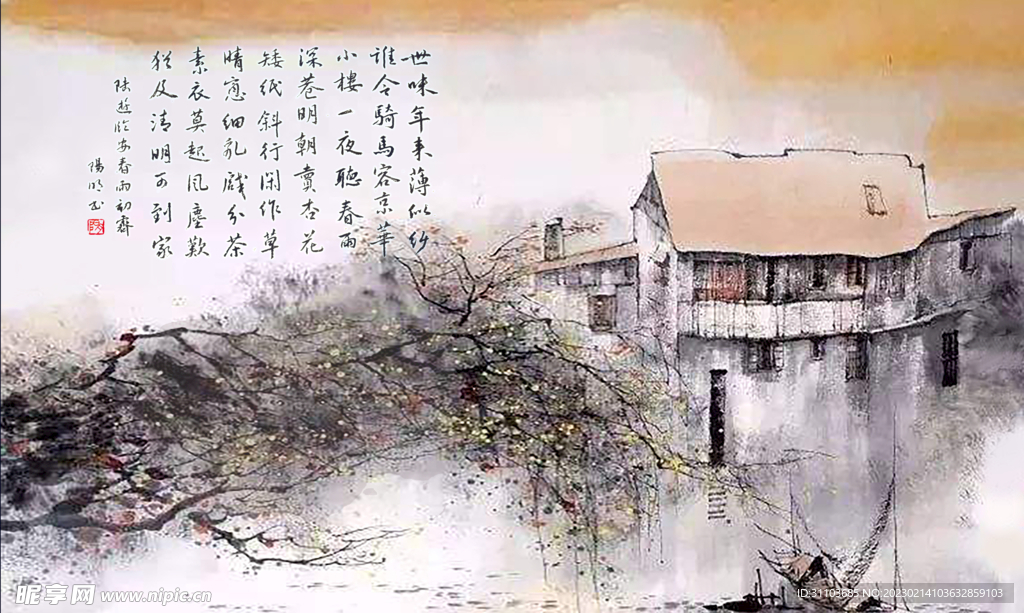 世味年来薄似纱
谁令騎馬客京華
小樓一夜聽春雨
深巷明朝賣杏花
矮纸斜行閑作草
晴窓细乳戲分茶
素衣莫起风塵歎
猶及清明可到家
陸遊临安春雨初霽
陽明书
昵享网 www.nipic.cn
ID:31103685 NO:20230214103632859103